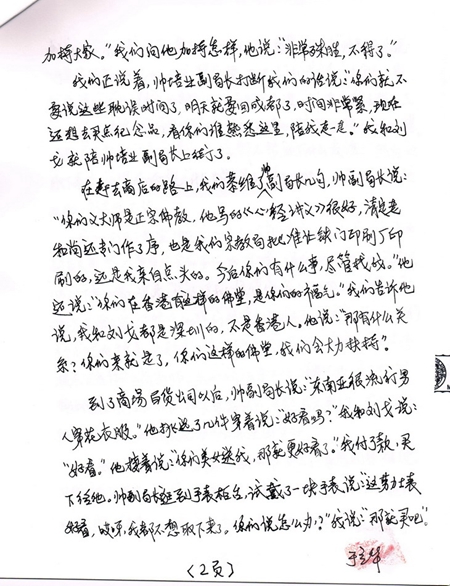 加持大家。"我们问他加持怎样，他说："非常殊胜，不得了。"
我们正说着，帅培业副局长打断我们的话说："你们就不
要说这些耽误时间了，明天就要回成都了，时间非常紧，现在
还想去买点纪念品，看你们谁熟悉这里，陪我走一走。"我和刘
戈就陪帅培业副局长上街了。
在赶去商店的路上，我们恭维了帅副局长几句，帅副局长说：
"你们义大师是正宗佛教，他写的《心经讲义》很好，清定老
和尚还专门作了序，也是我们宗教局批准让部门印刷厂印
刷的，还是我亲自点头的。今后你们有什么事，尽管找我。"他
还说："你们在香港有这样的佛堂，是你们的福气。"我们告诉他
说，我和刘戈都是深圳的，不是香港人。他说："那有什么关
系？你们来就是了，你们这样的佛堂，我们会大力扶持。"
到了商场百货公司以后，帅副局长说："东南亚很流行男
人穿花衣服。"他挑选了几件穿着说："好看吗？"我和刘戈说：
"好看。"他接着说："你们美女送我，那就更好看了。"我付了款，买
下给他。帅副局长逛到手表柜台，试戴了一块手表说："这劳力士表
好看，哎呀，我都不想取下来了。你们说怎么办？"我说："那就买吧。"
（2页）